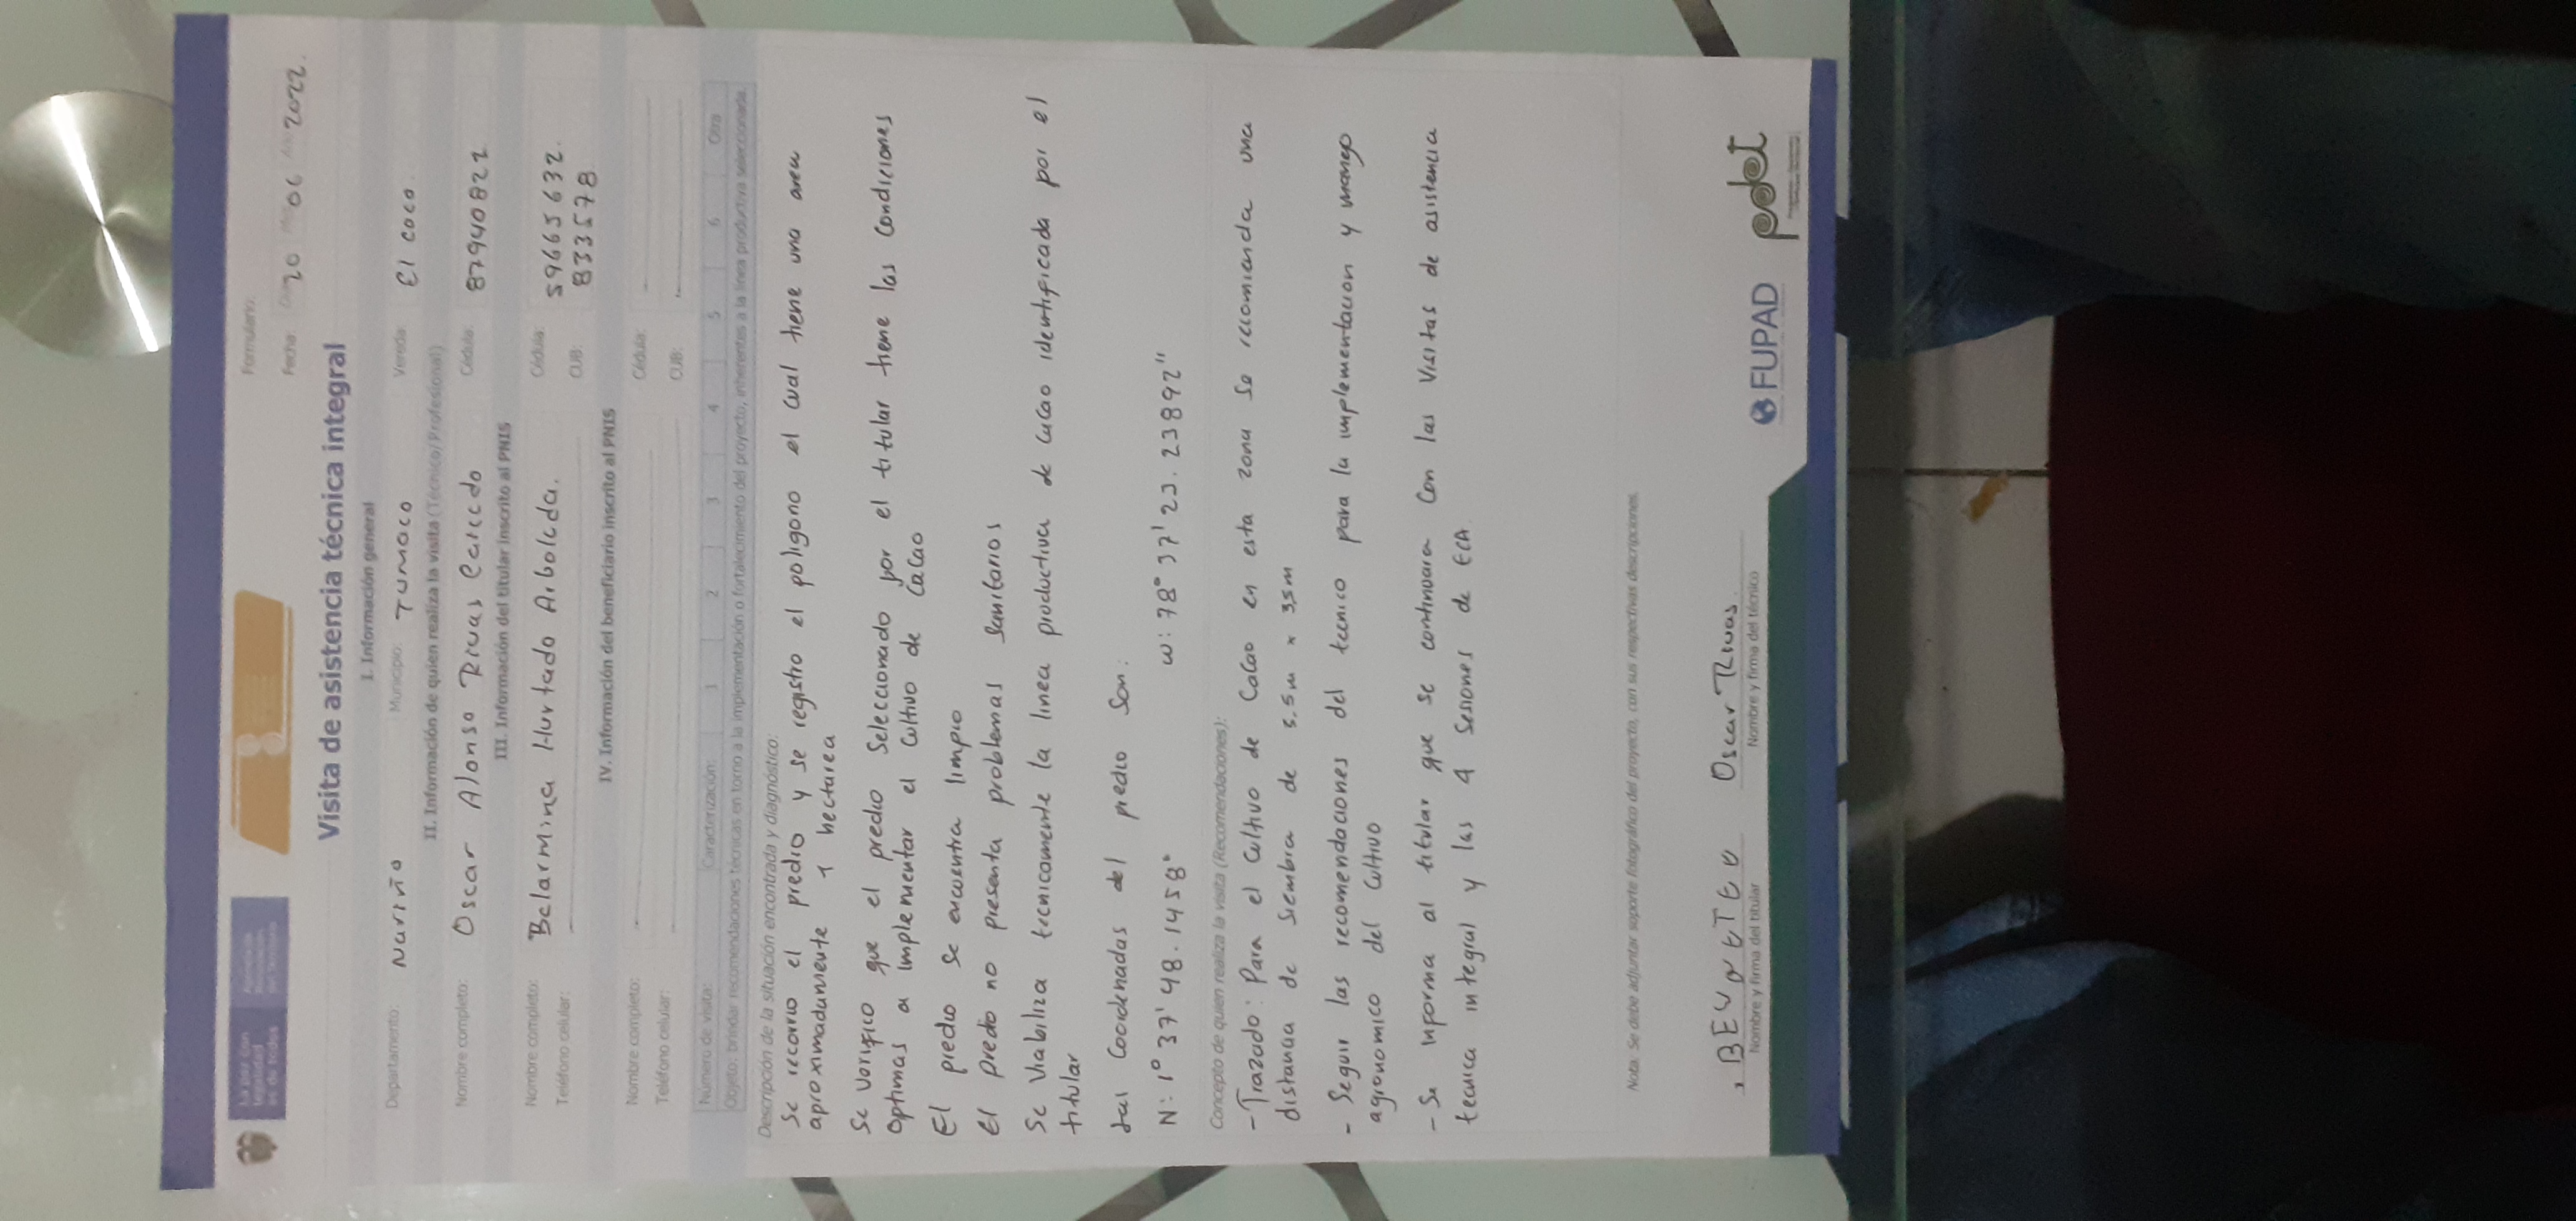 Formulario:
Fecha: Día 20 Mes 06 Año 2022.
Visita de asistencia técnica integral
I. Información general
Departamento: Nariño Municipio: Tumaco Vereda: El coco.
II. Información de quien realiza la visita (Técnico/Profesional)
Nombre completo: Oscar Alonso Rivas Caicedo Cédula: 87940822
III. Información del titular inscrito al PNIS
Nombre completo: Belarmina Hurtado Arboleda. Cédula: 59665632.
Teléfono celular: CUB: 833578
IV. Información del beneficiario inscrito al PNIS
Nombre completo: Cédula:
Teléfono celular: CUB:
Número de visita: Caracterización: 1 2 3 4 5 6 Otra
Objeto: brindar recomendaciones técnicas en torno a la implementación o fortalecimiento del proyecto, inherentes a la línea productiva seleccionada.
Descripción de la situación encontrada y diagnóstico:
Se recorrio el predio y se registro el poligono el cual tiene una area
aproximadamente 1 hectarea
Se Verifico que el predio Seleccionado por el titular tiene las condiciones
optimas a implementar el Cultivo de CaCao
El predio se encuentra limpio
El predio no presenta problemas sanitarios
Se Viabiliza tecnicamente la linea productiva de cacao identificada por el
titular
Las Coordenadas del predio son:
N: 1° 37' 48.1458" W: 78° 37' 23.23892"
Concepto de quien realiza la visita (Recomendaciones):
- Trazado: Para el Cultivo de CaCao en esta zona se recomienda una
distancia de siembra de 3.5m x 3,5m
- Seguir las recomendaciones del tecnico para la implementacion y manejo
agronomico del Cultivo
- Se informa al titular que se continuara Con las Visitas de asistencia
tecnica integral y las 4 Sesiones de ECA
Nota: Se debe adjuntar soporte fotográfico del proyecto, con sus respectivas descripciones.
Oscar Rivas.
Nombre y firma del titular Nombre y firma del técnico
FUPAD pdet